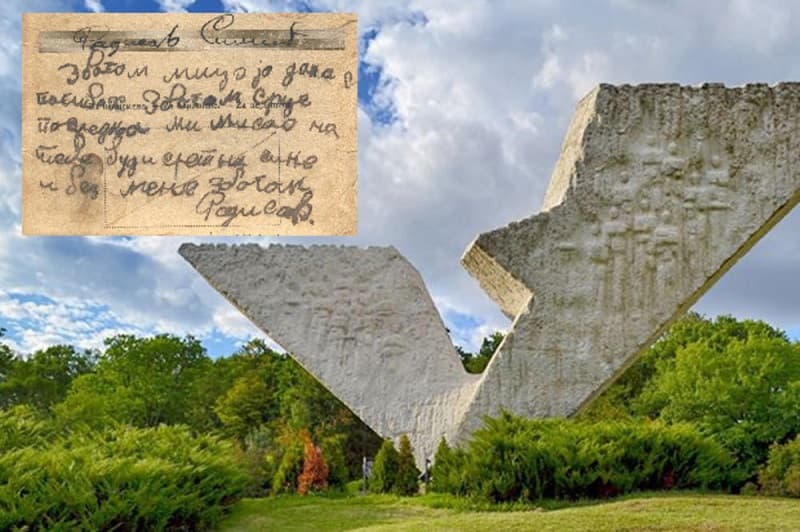 Радисав Симић
Збогом мицо јо дана с
погибох Збогом Срце
последња ми мисао на
тебе буди сретна сино
и без мене збогом
Радисав.